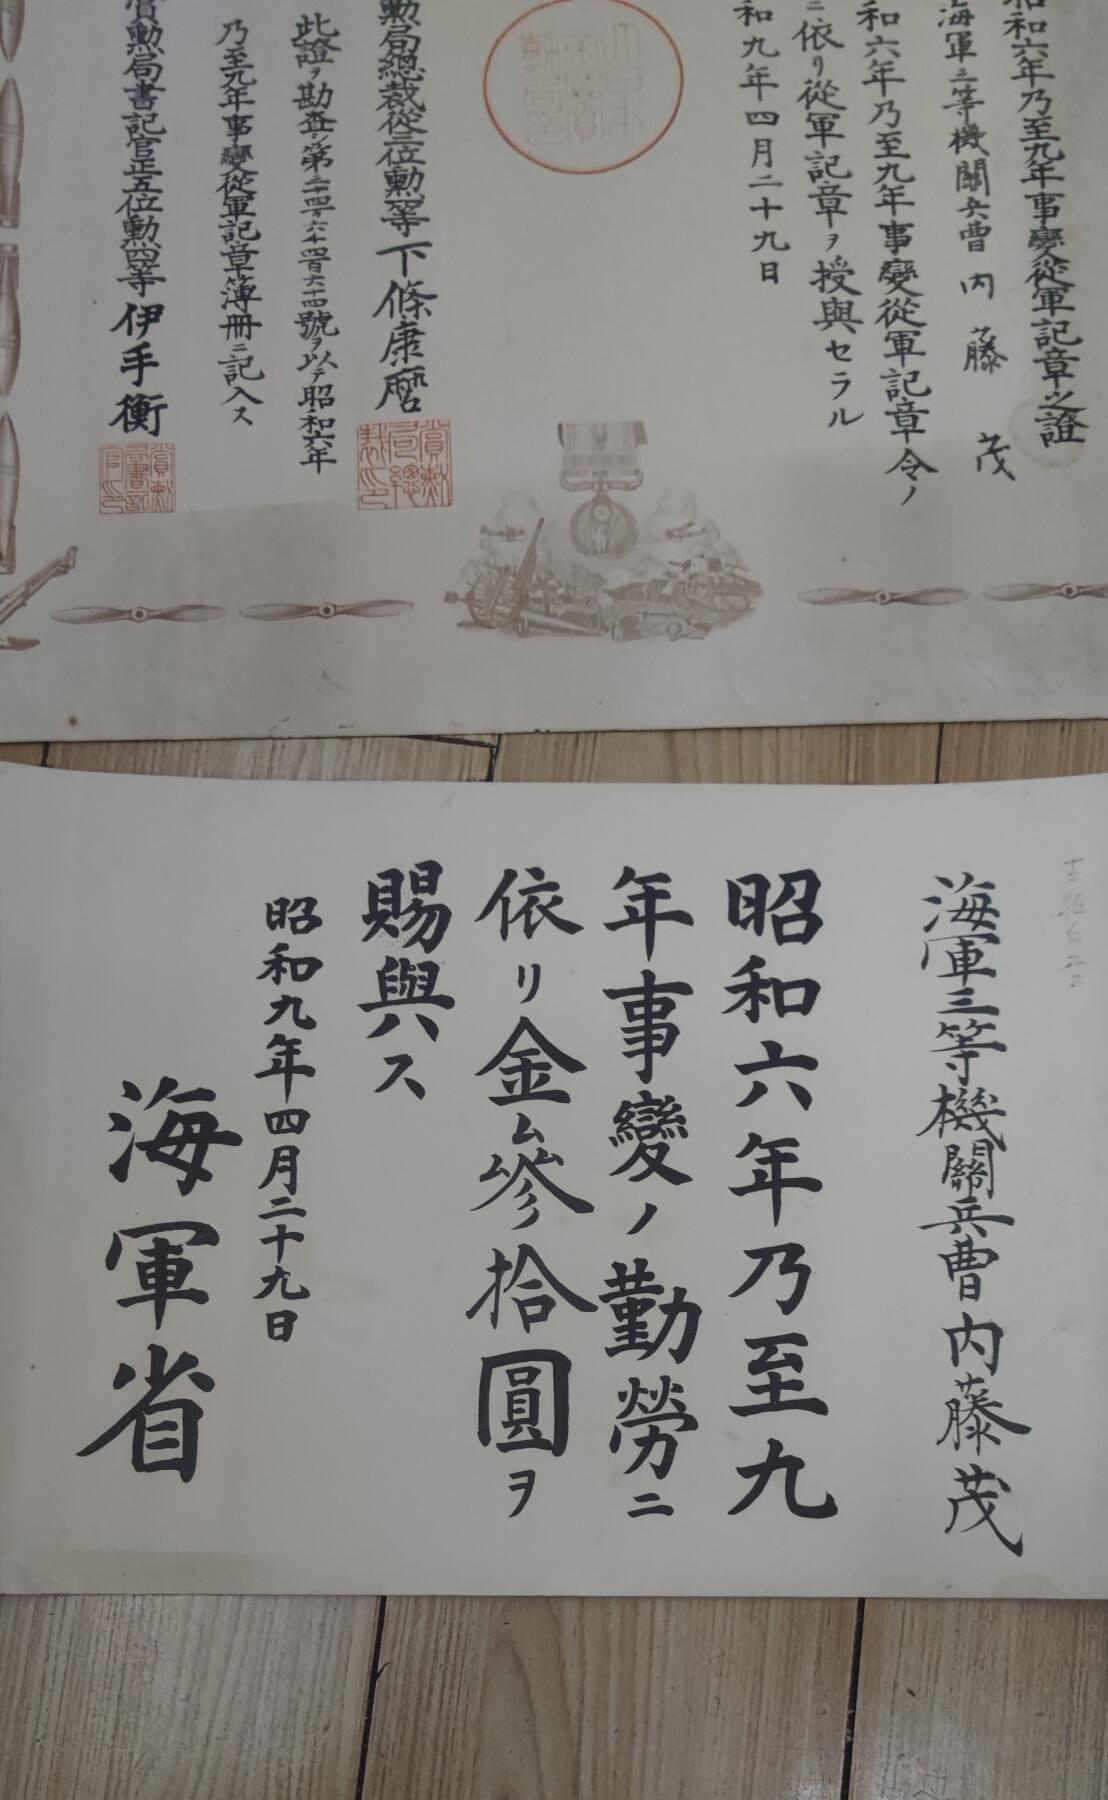 和六年乃至九年事變從軍記章之證
海軍三等機關兵曹 内藤茂
和六年乃至九年事變從軍記章令ノ
ニ依リ從軍記章ヲ授與セラル
和九年四月二十九日
大日本
帝國賞
勲局印
勲局總裁從三位勲等下條康麿
賞勲
局總
裁印
此證ヲ勘査シ第二十四万六千四百六十四號ヲ以テ昭和六年
乃至九年事變從軍記章簿冊ニ記入ス
賞勲局書記官正五位勲四等伊手衡
賞勲
局書記
官印
海軍三等機關兵曹内藤茂
昭和六年乃至九
年事變ノ勤勞ニ
依リ金參拾圓ヲ
賜與ス
昭和九年四月二十九日
海軍省